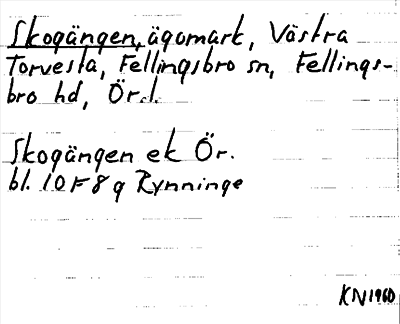 Skogängen, ägomark, Västra
Torvesta, Fellingsbro sn, Fellings-
bro hd, Ör.l.
Skogängen ek Ör.
bl. 10F8g Rynninge
KN1960